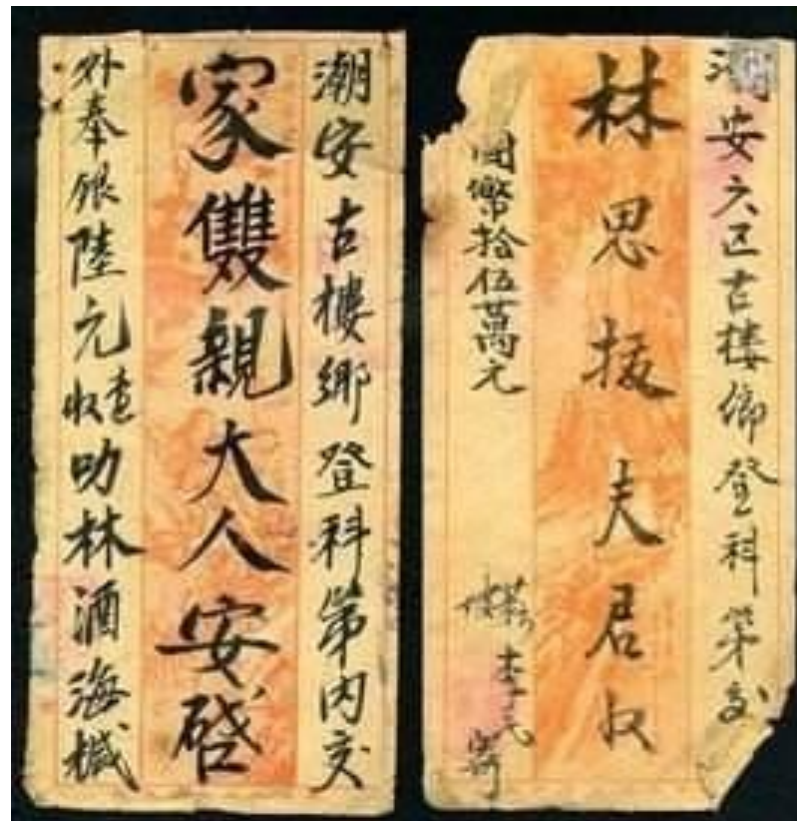 潮安古樓鄉登科第內交
家雙親大人安啓
外奉銀陸元查收叻林酒海緘
安六区古楼鄉登科第交
林思援夫君收
国幣拾伍萬元
李氏寄